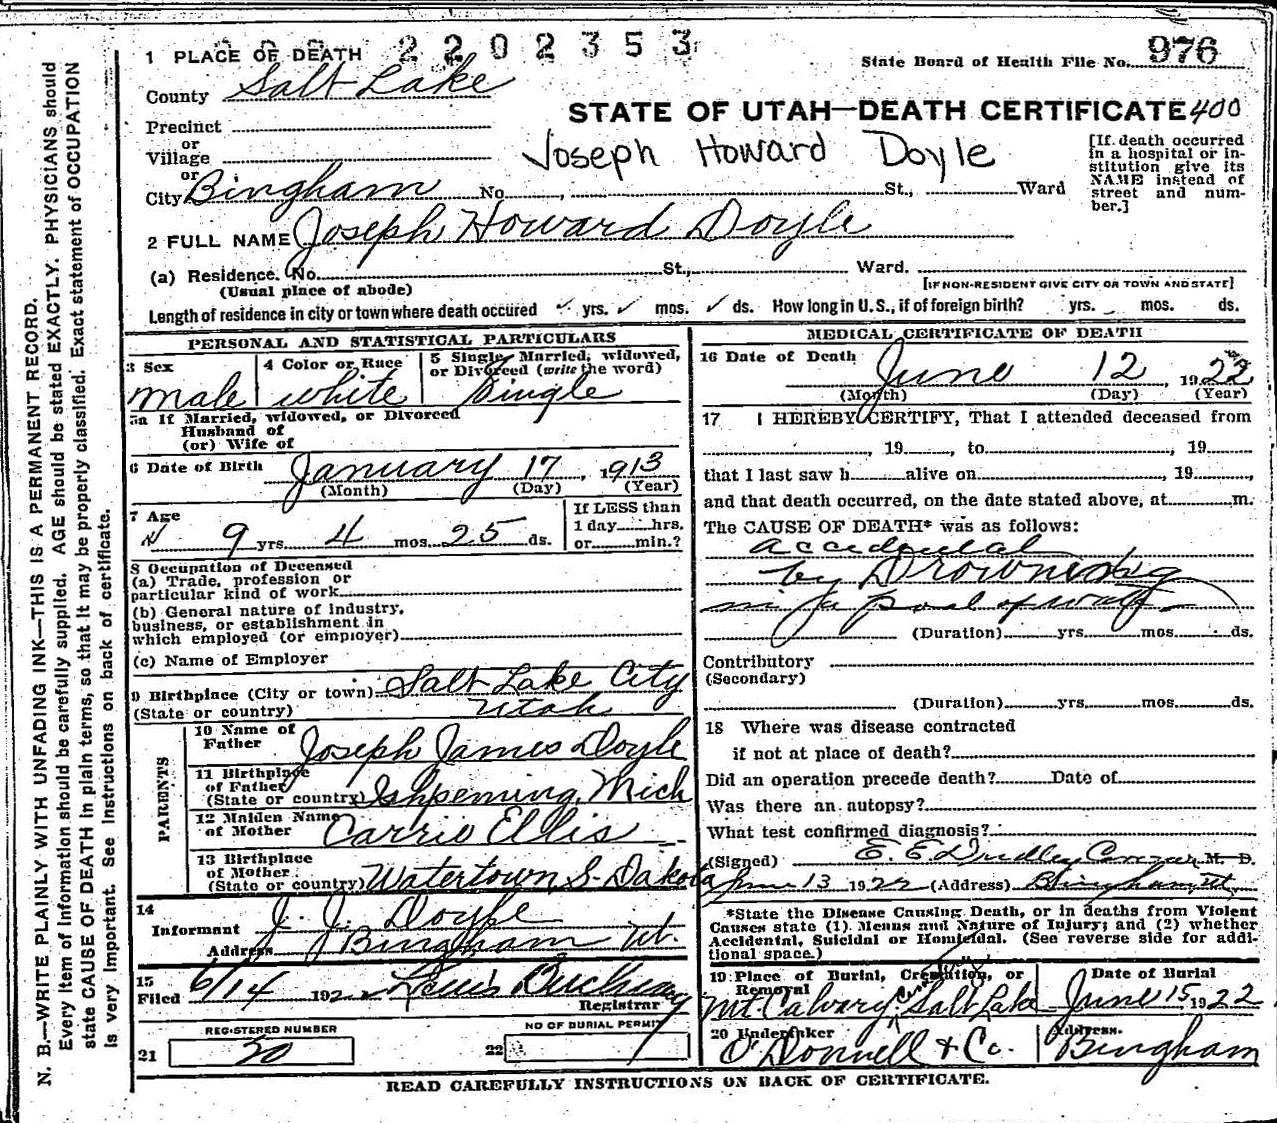 2202353
1 PLACE OF DEATH
State Board of Health File No. 976
County Salt Lake
STATE OF UTAH—DEATH CERTIFICATE 400
Precinct
or
Village
or
Joseph Howard Doyle
[If death occurred in a hospital or institution give its NAME instead of street and number.]
City Bingham No. St., Ward
2 FULL NAME Joseph Howard Doyle
(a) Residence. No. St., Ward.
(Usual place of abode)
[IF NON-RESIDENT GIVE CITY OR TOWN AND STATE]
Length of residence in city or town where death occured ✓ yrs. ✓ mos. ✓ ds. How long in U.S., if of foreign birth? yrs. mos. ds.
PERSONAL AND STATISTICAL PARTICULARS
3 Sex
male
4 Color or Race
white
5 Single, Married, widowed,
or Divorced (write the word)
Single
5a If Married, widowed, or Divorced
Husband of
(or) Wife of
6 Date of Birth January 17, 1913
(Month) (Day) (Year)
7 Age
9 yrs. 4 mos. 25 ds.
If LESS than
1 day hrs.
or min.?
8 Occupation of Deceased
(a) Trade, profession or
particular kind of work
(b) General nature of industry,
business, or establishment in
which employed (or employer)
(c) Name of Employer
9 Birthplace (City or town) Salt Lake City
(State or country) Utah
PARENTS
10 Name of
Father Joseph James Doyle
11 Birthplace
of Father
(State or country) Ishpeming, Mich
12 Maiden Name
of Mother Carrie Ellis
13 Birthplace
of Mother
(State or country) Watertown S. Dakota
14
Informant J. J. Doyle
Address Bingham Ut.
15
Filed 6/14 1922 Louis Buchman
Registrar
REGISTERED NUMBER
21 30
NO OF BURIAL PERMIT
22
MEDICAL CERTIFICATE OF DEATH
16 Date of Death June 12, 1922
(Month) (Day) (Year)
17 I HEREBY CERTIFY, That I attended deceased from
, 19 , to , 19 ,
that I last saw h alive on , 19 ,
and that death occurred, on the date stated above, at m.
The CAUSE OF DEATH* was as follows:
accidental
by Drowning
in a pool of water
(Duration) yrs. mos. ds.
Contributory
(Secondary)
(Duration) yrs. mos. ds.
18 Where was disease contracted
if not at place of death?
Did an operation precede death? Date of
Was there an autopsy?
What test confirmed diagnosis?
(Signed) E. E. Dudley Coroner M. D.
June 13 1922 (Address) Bingham Ut.
*State the Disease Causing Death, or in deaths from Violent
Causes state (1) Means and Nature of Injury; and (2) whether
Accidental, Suicidal or Homicidal. (See reverse side for addi-
tional space.)
19 Place of Burial, Cremation, or
Removal
Mt. Calvary Salt Lake
Date of Burial
June 15 1922
20 Undertaker
O'Donnell & Co.
Address.
Bingham
READ CAREFULLY INSTRUCTIONS ON BACK OF CERTIFICATE.
N. B.—WRITE PLAINLY WITH UNFADING INK—THIS IS A PERMANENT RECORD.
Every item of information should be carefully supplied. AGE should be stated EXACTLY. PHYSICIANS should
state CAUSE OF DEATH in plain terms, so that it may be properly classified. Exact statement of OCCUPATION
is very important. See instructions on back of certificate.